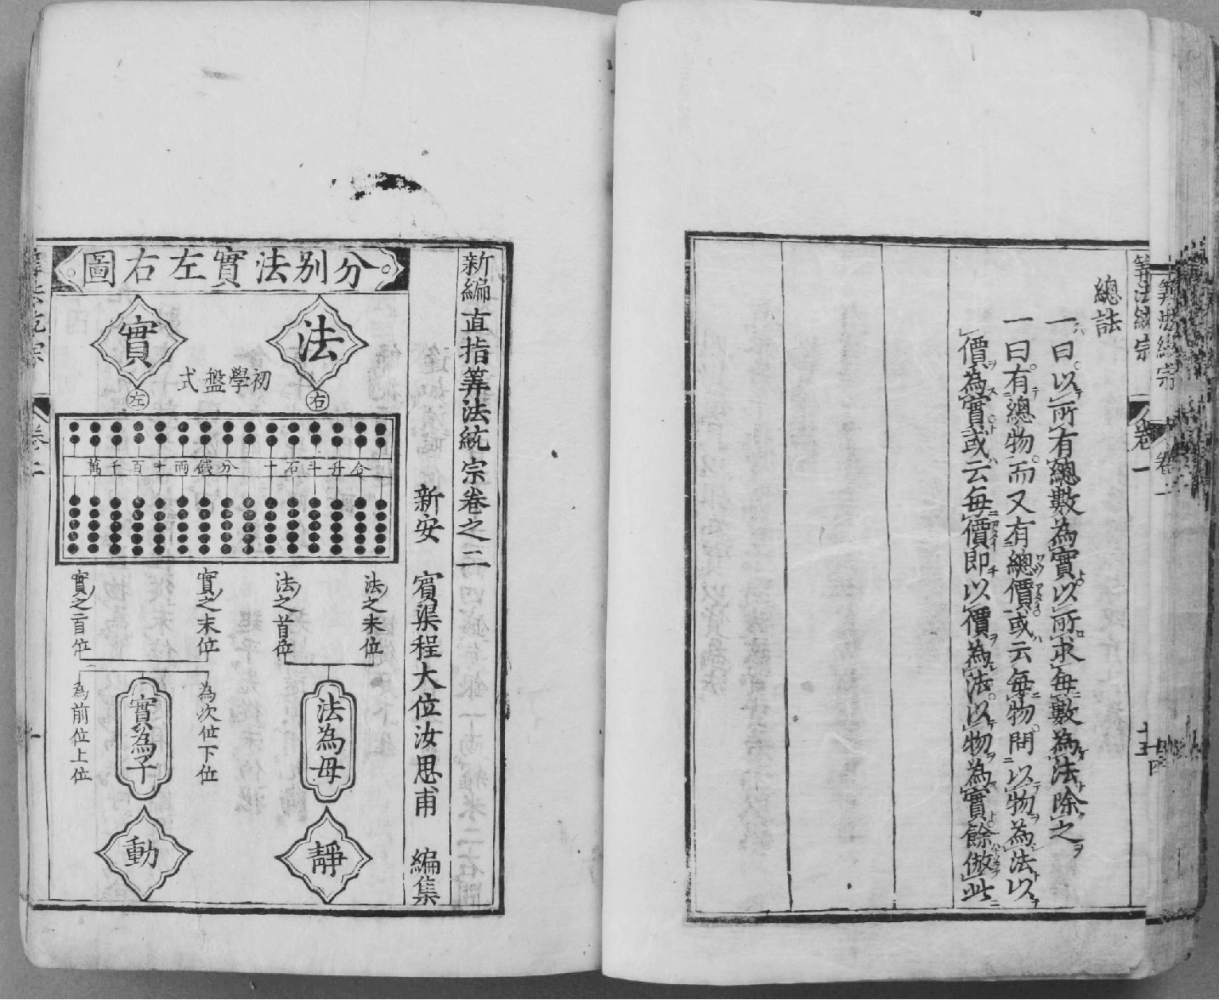 算法統宗
卷一
總註
一曰以所有總數為實以所求每數為法除之
一曰有總物而又有總價或云每物問以物為法以
價為實或云每價即以價為法以物為實餘倣此
新編直指筭法統宗卷之二
新安 賓渠程大位汝思甫 編集
分別法實左右圖
法
右
初學盤式
實
左
合升斗石十 分錢兩十百千萬
法之末位
法之首位
實之末位
實之首位
法為母
為次位下位
實為子
為前位上位
靜
動
卷二